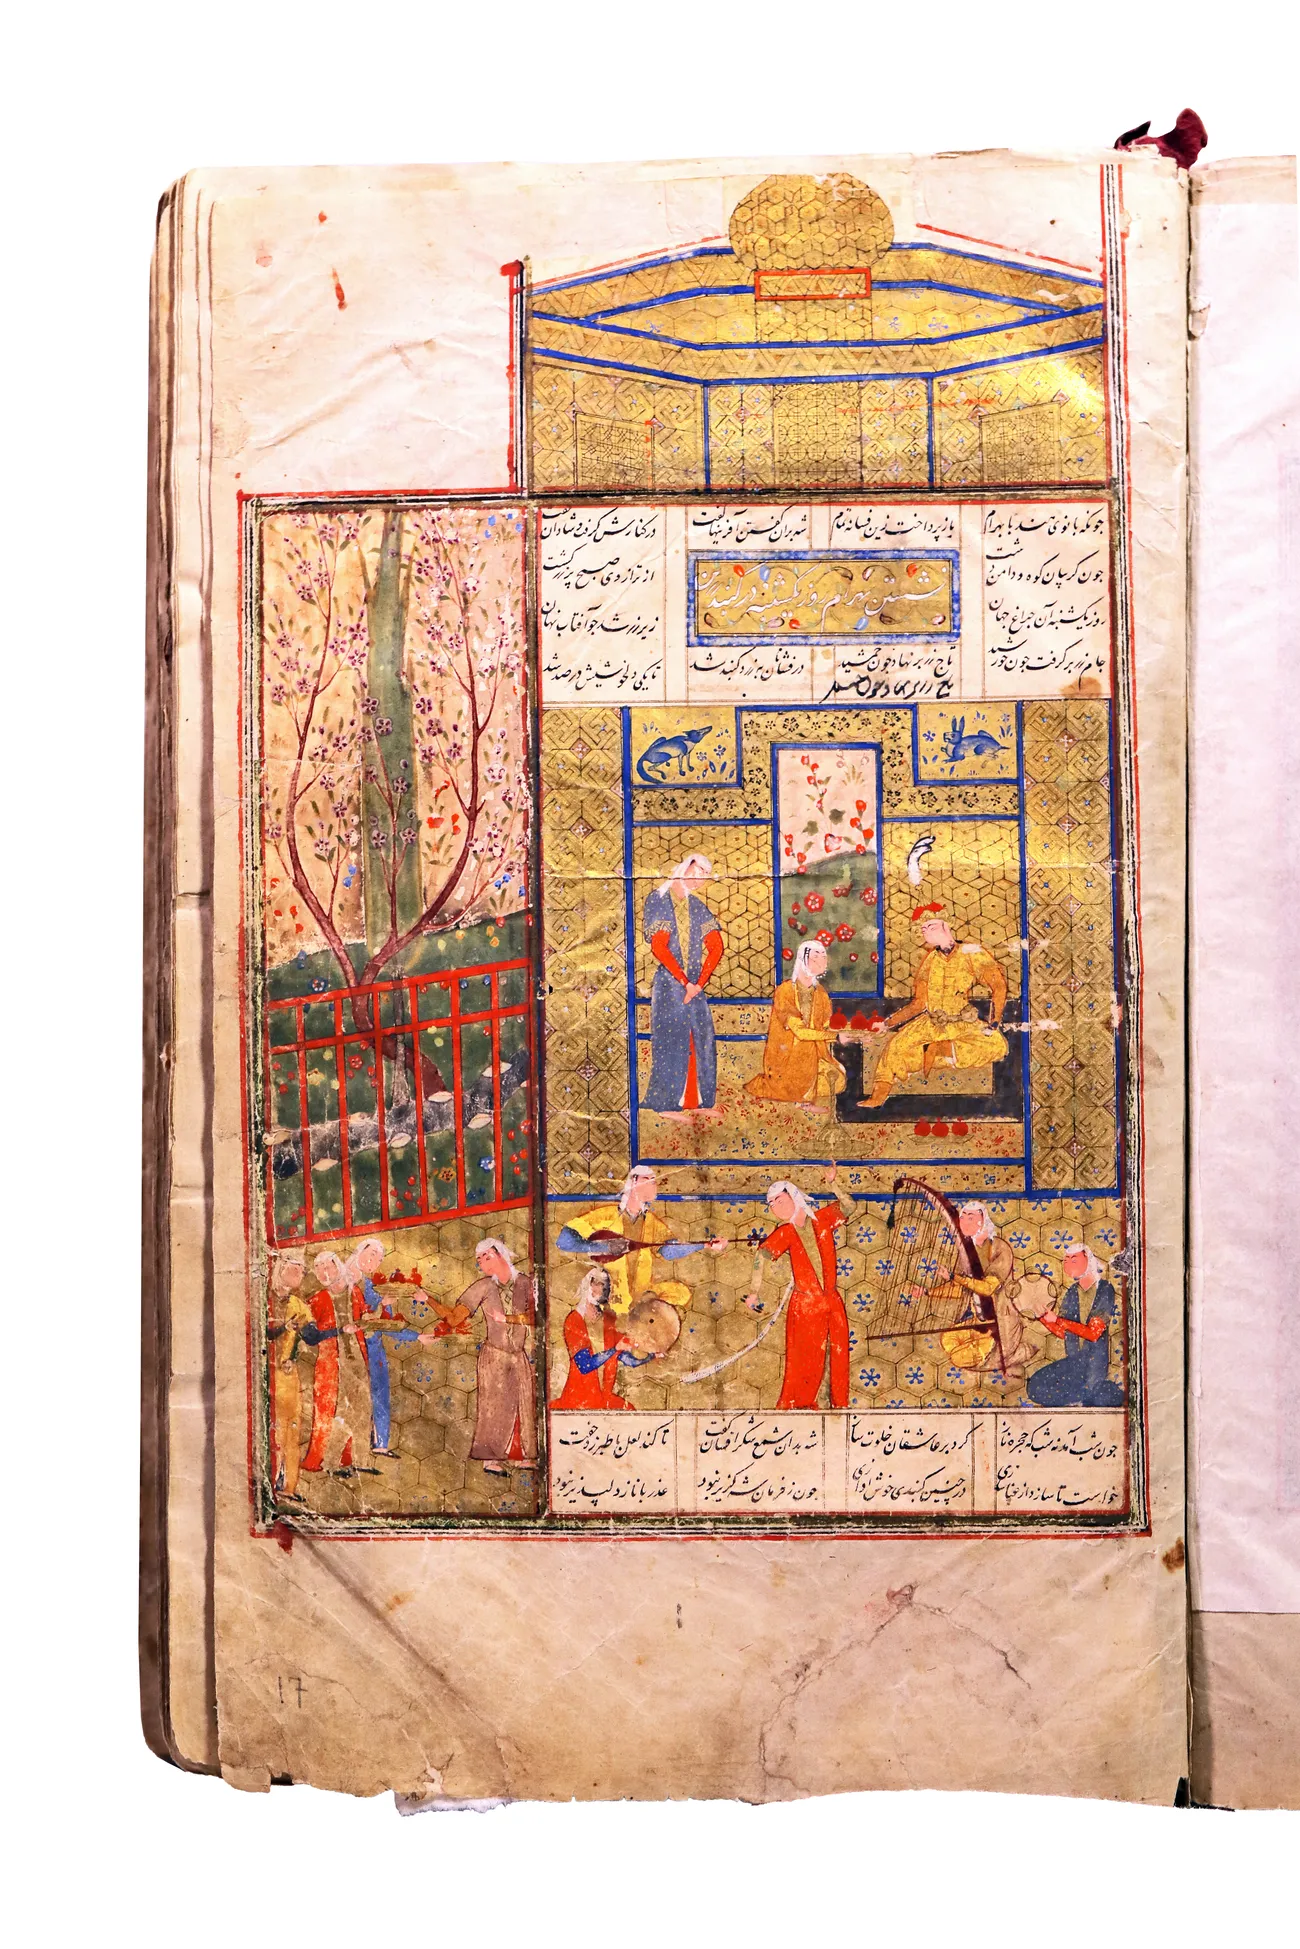 جونکه بانوی هند با بهرام باز پرداخت زین فسانه تمام شه بران گفتن آفرینها گفت در کنارش گرفت و شادان خفت
جون کریبان کوه و دامن دشت از ترازوی صبح پر زر گشت
نشستن بهرام روز یکشنبه در کنبد زرین
روز یکشنبه آن جراغ جهان زیر زر شد جو آفتاب نهان
جام زر بر کرفت جون خورشید تاج زر بر نهاد جون جمشید بزرد کنبد شد تا یکی دلخوشیش در صد شد
تاج زر بر نهاد جون جمشید
جون شب آمد نه شب که حجره ناز کرد بر عاشقان خلوت ساز شه بدان شمع شکر افشان گفت تا کند لعل با طبرزد جفت
خواست تا سازد از غناسازی در جنین کنبدی خوش آوازی جون ز فرمان شه کزیر نبود عذر با ناز دلپذیر نبود
17